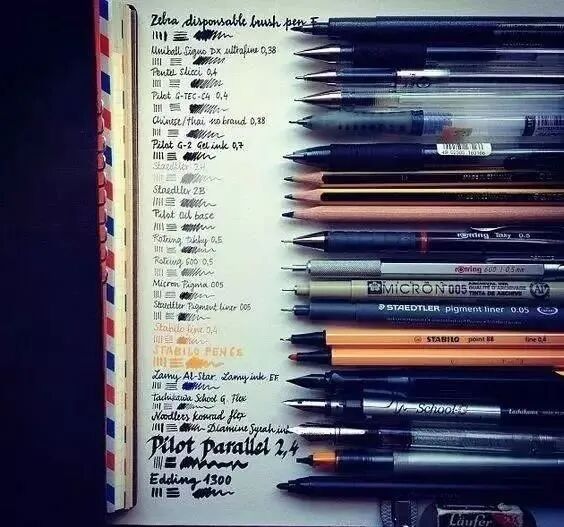 Zebra disposable brush pen F
Uniball Signo DX ultrafine 0,38
Pentel Slicci 0,4
Pilot G-TEC-C4 0,4
Chinese/Thai no brand 0,38
Pilot G-2 Gel ink 0,7
Staedtler 2H
Staedtler 2B
Pilot Oil base
Rotring tikky 0,5
Rotring 600 0,5
Micron Pigma 005
Staedtler Pigment liner 005
Stabilo fine 0,4
STABILO PEN68
Lamy Al-Star. Lamy ink EF
Tachikawa School G. Flex
Noodlers Konrad flex
Diamine Syrah ink
Pilot Parallel 2,4
Edding 1300
rotring Tikky 0.5
rotring 600 | 0,5mm
MICRON 005
STAEDTLER pigment liner 0.05
STABILO point 88 fine 0,4
School G
Tachikawa
Läufer